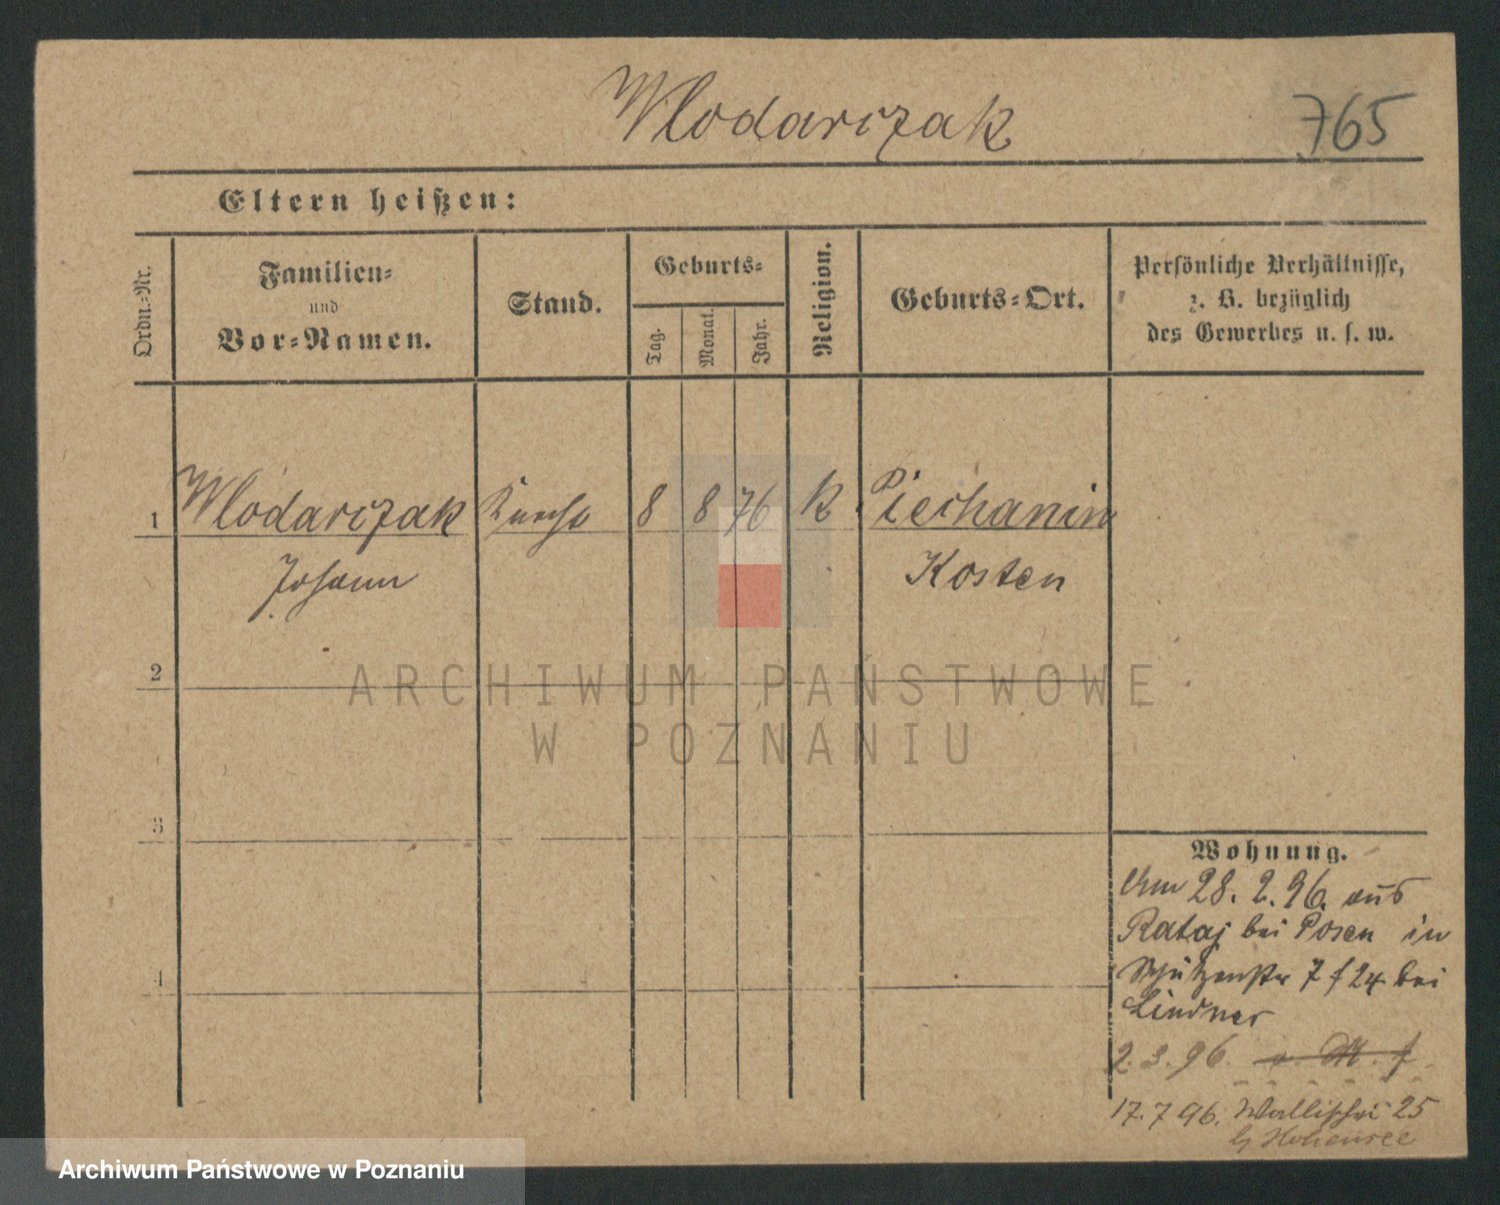 Wlodarczak
765
Eltern heißen:
Ordn.-Nr.
Familien-
und
Vor-Namen.
Stand.
Geburts-
Tag.
Monat.
Jahr.
Religion.
Geburts-Ort.
Persönliche Verhältnisse,
z. B. bezüglich
des Gewerbes u. s. w.
1 Wlodarczak 8 8 76 k Piechanin
Johann Kosten
2
ARCHIWUM PAŃSTWOWE
W POZNANIU
3
Wohnung.
Am 28. 2. 96. aus
Rataj bei Posen in
4
Schützenstr 7 f 24 bei
Lindner
2. 3. 96.
17. 7 96. Wallischei 25
b Hohensee
Archiwum Państwowe w Poznaniu